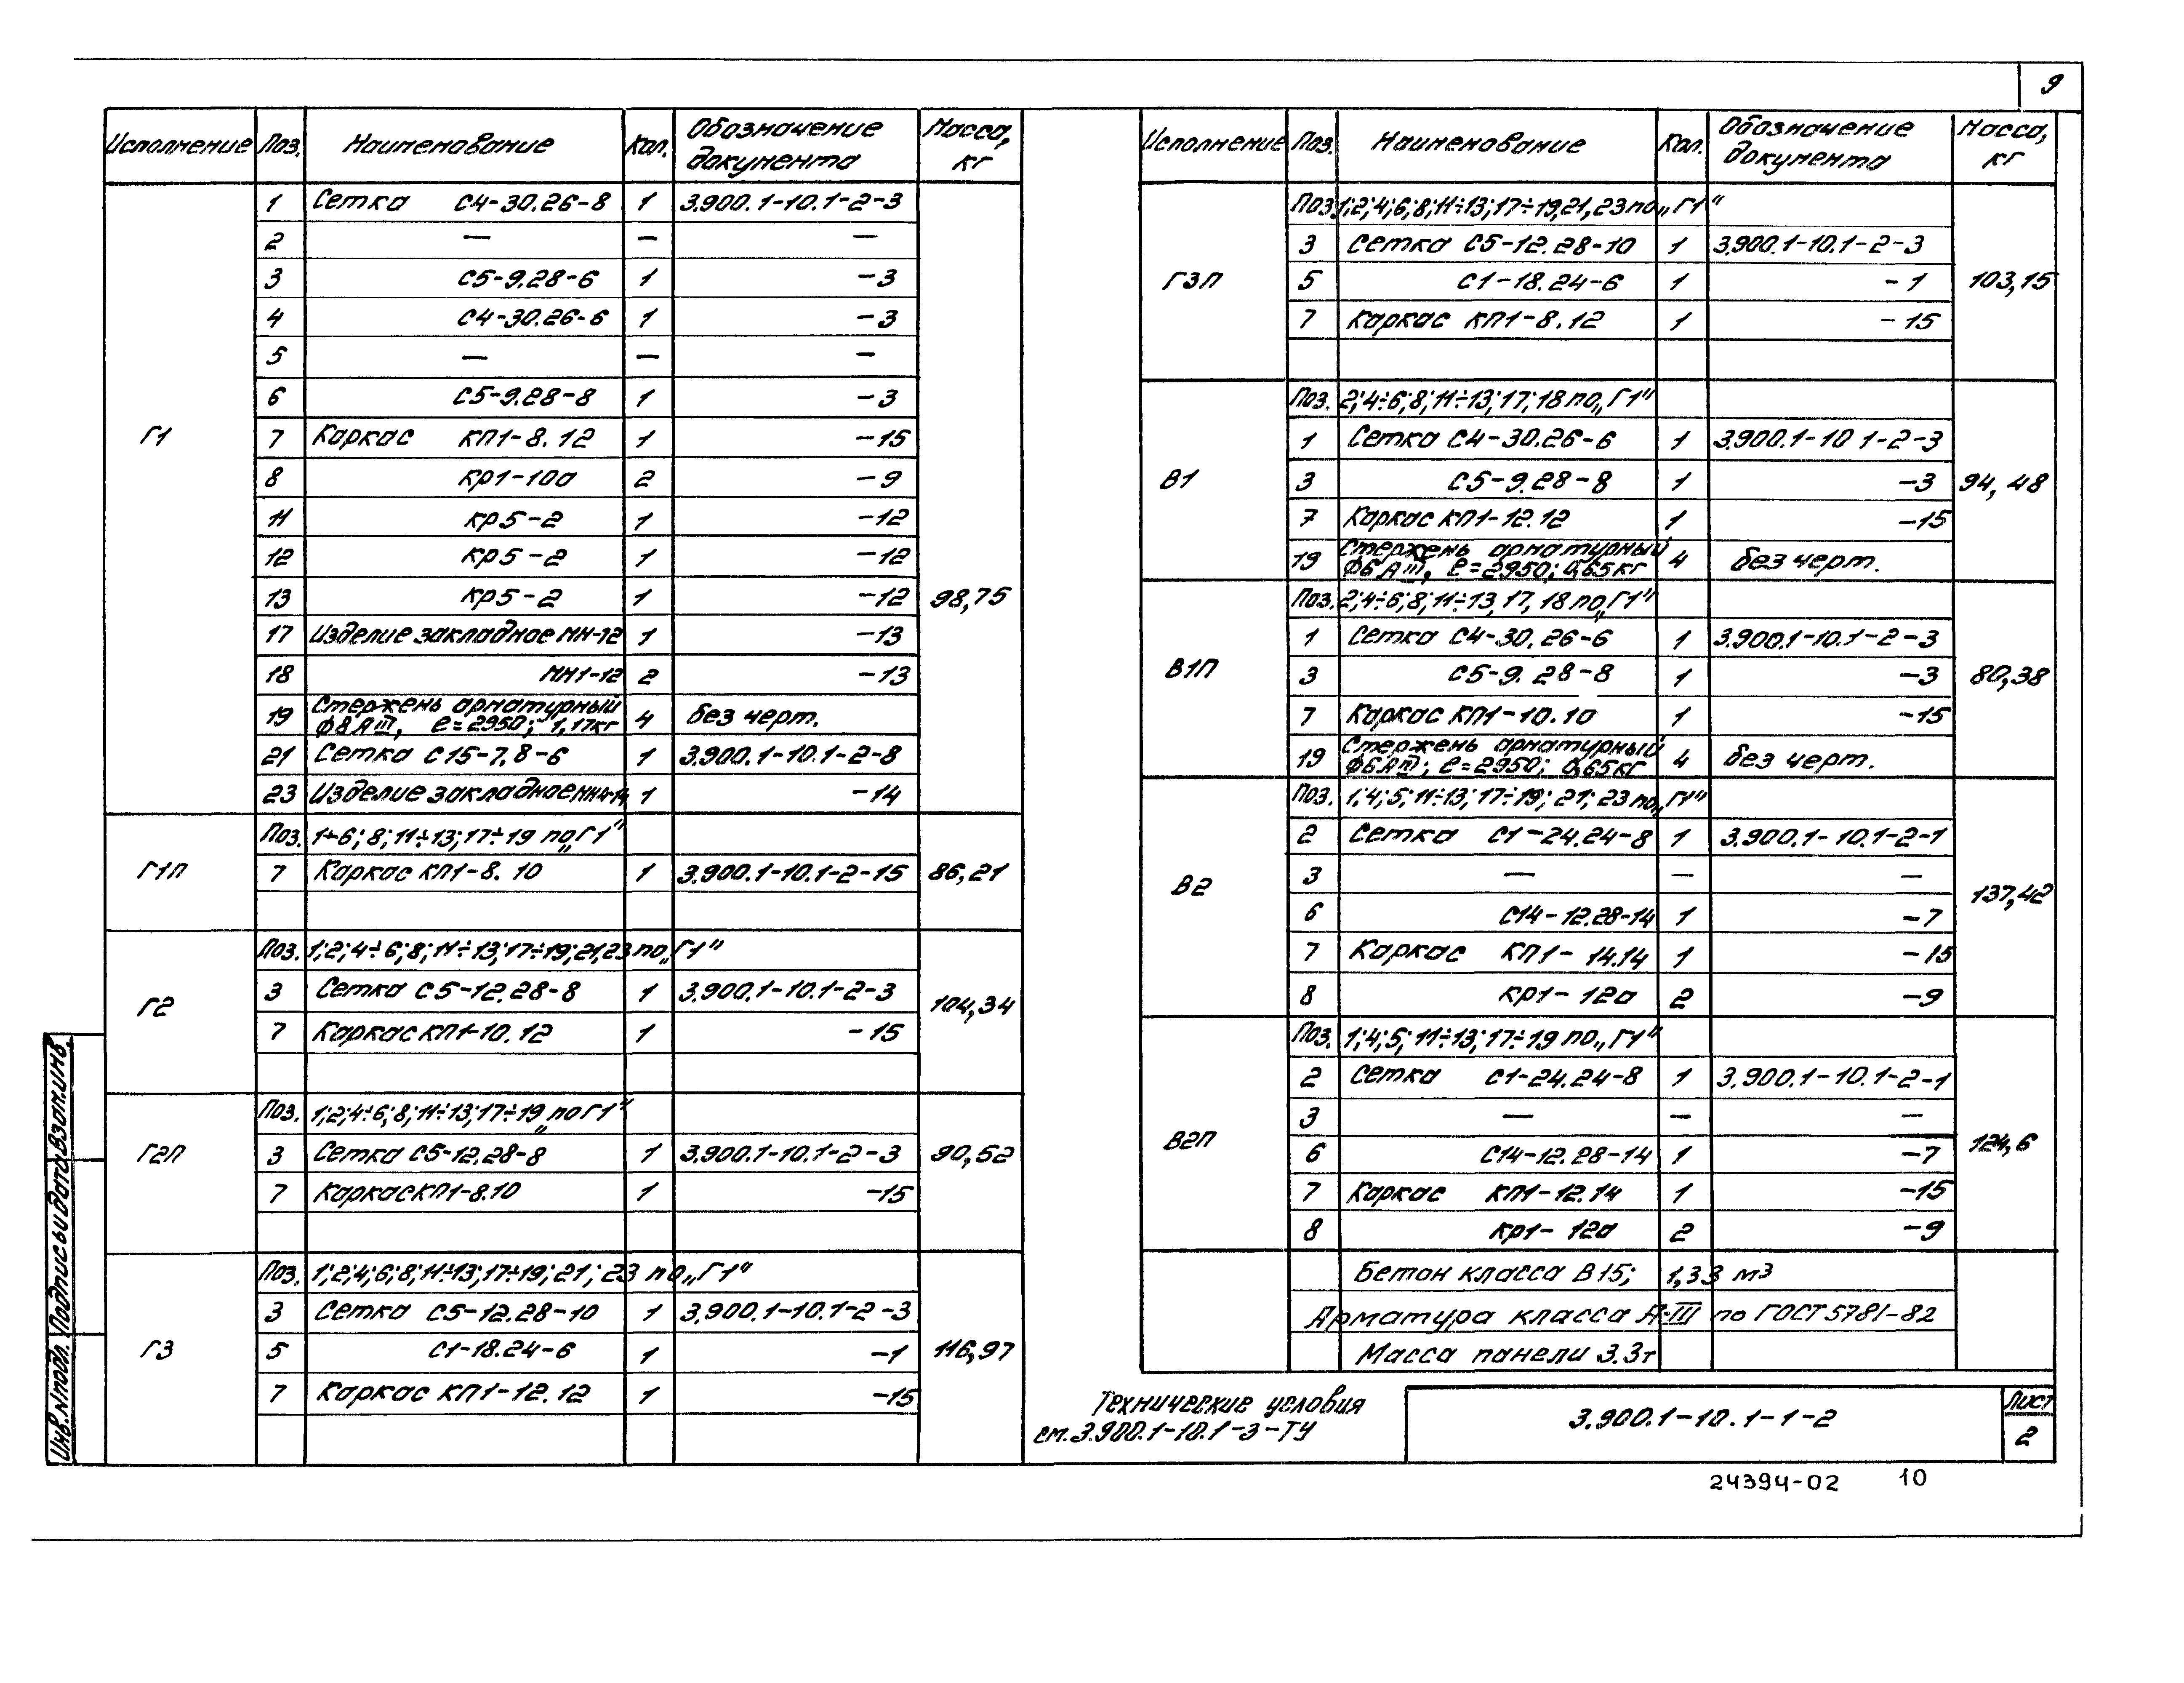 9
Исполнение Поз. Наименование Кол. Обозначение документа Масса, кг
Г1 98,75
1 Сетка С4-30.26-8 1 3.900.1-10.1-2-3
2 — — —
3 С5-9.28-6 1 -3
4 С4-30.26-6 1 -3
5 — — —
6 С5-9.28-8 1 -3
7 Каркас КП1-8.12 1 -15
8 Кр1-10а 2 -9
11 Кр5-2 1 -12
12 Кр5-2 1 -12
13 Кр5-2 1 -12
17 Изделие закладное МН-12 1 -13
18 МН1-12 2 -13
19 Стержень арматурный ф8АIII, ℓ=2950; 1,17кг 4 без черт.
21 Сетка С15-7.8-6 1 3.900.1-10.1-2-8
23 Изделие закладное МН4-14 1 -14
Г1П 86,21
Поз. 1÷6; 8; 11÷13; 17÷19 по „Г1"
7 Каркас КП1-8.10 1 3.900.1-10.1-2-15
Г2 104,34
Поз. 1;2;4÷6;8;11÷13;17÷19;21,23 по „Г1"
3 Сетка С5-12.28-8 1 3.900.1-10.1-2-3
7 Каркас КП1-10.12 1 -15
Г2П 90,52
Поз. 1;2;4÷6;8;11÷13;17÷19 „по Г1"
3 Сетка С5-12.28-8 1 3.900.1-10.1-2-3
7 Каркас КП1-8.10 1 -15
Г3 116,97
Поз. 1;2;4;6;8;11÷13;17÷19; 21; 23 по „Г1"
3 Сетка С5-12.28-10 1 3.900.1-10.1-2-3
5 С1-18.24-6 1 -1
7 Каркас КП1-12.12 1 -15
Исполнение Поз. Наименование Кол. Обозначение документа Масса, кг
Г3П 103,15
Поз. 1;2;4;6;8;11÷13;17÷19,21,23 по „Г1"
3 Сетка С5-12.28-10 1 3.900.1-10.1-2-3
5 С1-18.24-6 1 -1
7 Каркас КП1-8.12 1 -15
В1 94,48
Поз. 2;4÷6;8;11÷13;17;18 по „Г1"
1 Сетка С4-30.26-6 1 3.900.1-10 1-2-3
3 С5-9.28-8 1 -3
7 Каркас КП1-12.12 1 -15
19 Стержень арматурный ф6АIII, ℓ=2950; 0,65кг 4 без черт.
В1П 80,38
Поз. 2;4÷6;8;11÷13,17,18 по „Г1"
1 Сетка С4-30.26-6 1 3.900.1-10.1-2-3
3 С5-9.28-8 1 -3
7 Каркас КП1-10.10 1 -15
19 Стержень арматурный ф6АIII; ℓ=2950; 0,65кг 4 без черт.
В2 137,42
Поз. 1;4;5;11÷13; 17÷19; 21; 23 по „Г1"
2 Сетка С1-24.24-8 1 3.900.1-10.1-2-1
3 — — —
6 С14-12.28-14 1 -7
7 Каркас КП1-14.14 1 -15
8 Кр1-12а 2 -9
В2П 124,6
Поз. 1;4;5; 11÷13; 17÷19 по „Г1"
2 Сетка С1-24.24-8 1 3.900.1-10.1-2-1
3 — — —
6 С14-12.28-14 1 -7
7 Каркас КП1-12.14 1 -15
8 Кр1-12а 2 -9
Бетон класса В15; 1,33 м3
Арматура класса А-III по ГОСТ 5781-82
Масса панели 3.3т
Технические условия
см. 3.900.1-10.1-3-ТУ
3.900.1-10.1-1-2
Лист
2
Инв.№подл. Подпись и дата Взам.инв.
24394-02 10